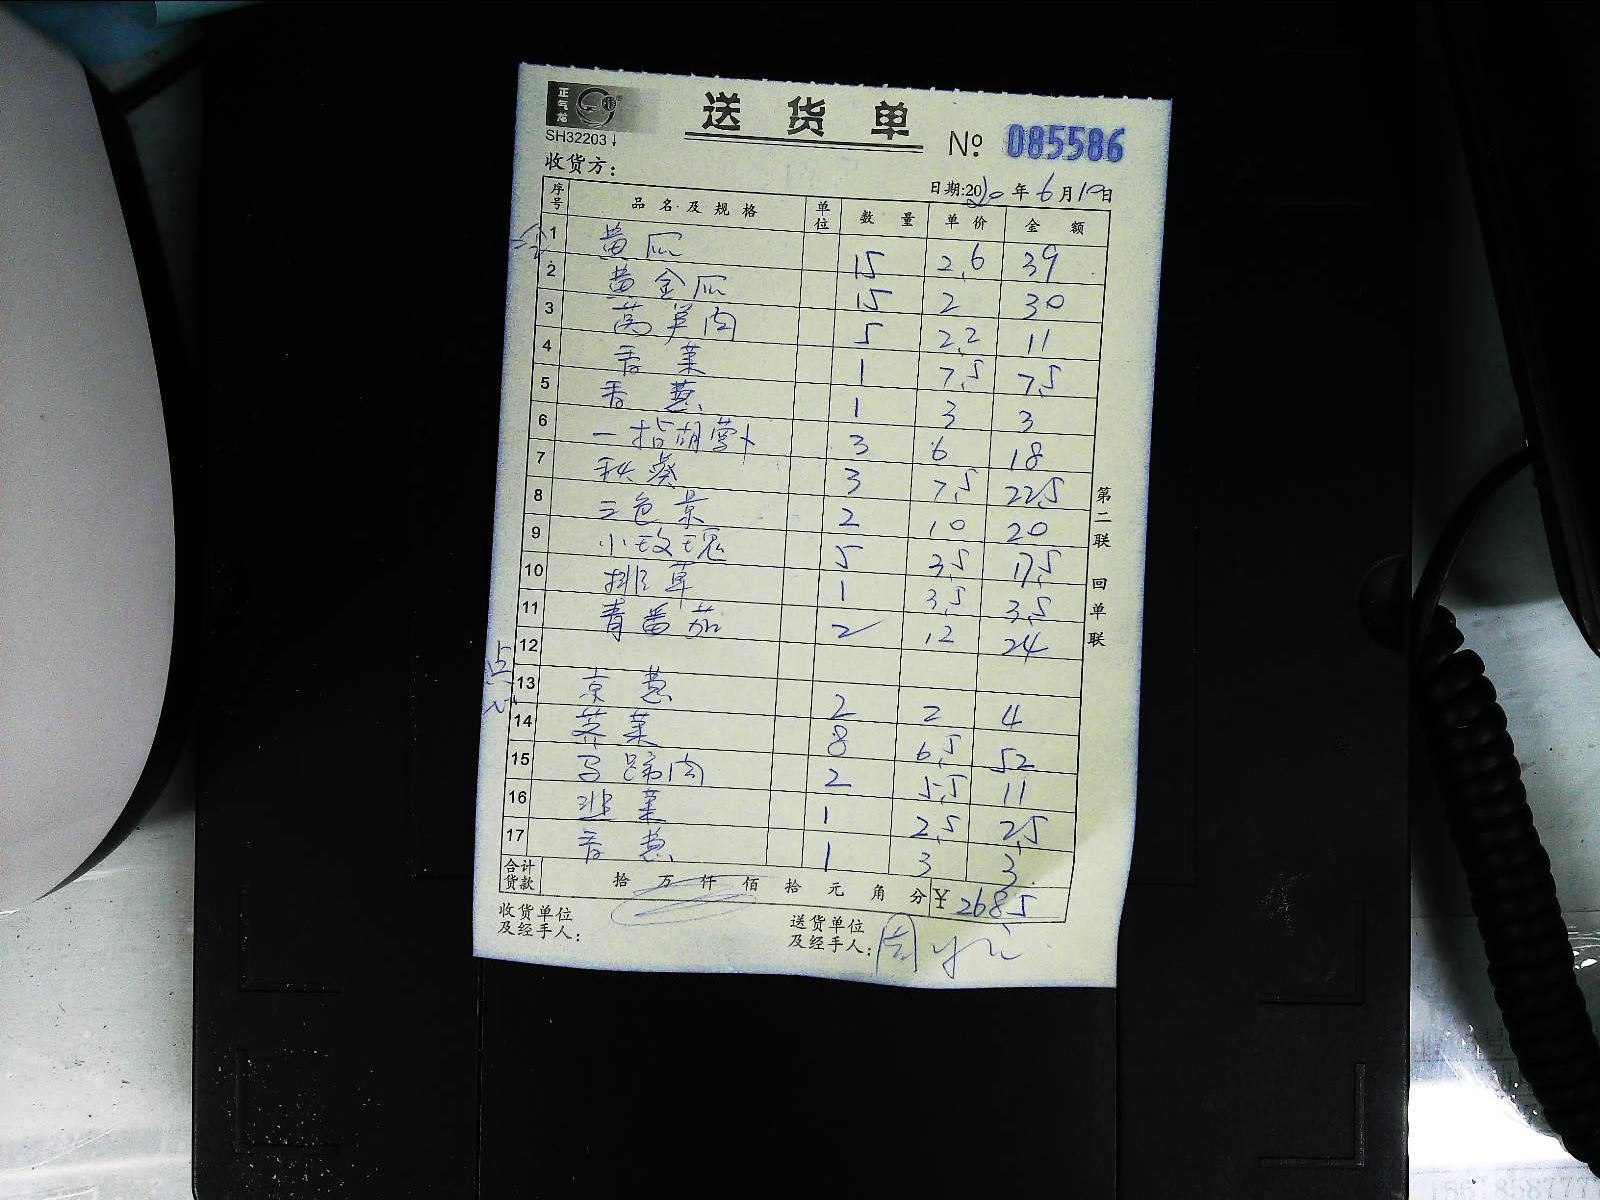 正气龙
送货单
SH32203
№ 085586
收货方：
日期:2020年6月10日
序号 品名及规格 单位 数量 单价 金额
1 黄瓜 15 2.6 39
2 黄金瓜 15 2 30
3 莴笋肉 5 2.2 11
4 香菜 1 7.5 7.5
5 香葱 1 3 3
6 一指胡萝卜 3 6 18
7 秋葵 3 7.5 22.5
8 三色堇 2 10 20
9 小玫瑰 5 3.5 17.5
10 排草 1 3.5 3.5
11 青番茄 2 12 24
12
点心
13 京葱 2 2 4
14 荠菜 8 6.5 52
15 马蹄肉 2 5.5 11
16 韭菜 1 2.5 2.5
17 香葱 1 3 3
合计货款 拾 万 仟 佰 拾 元 角 分 ¥ 268.5
收货单位及经手人：
送货单位及经手人：
第二联 回单联